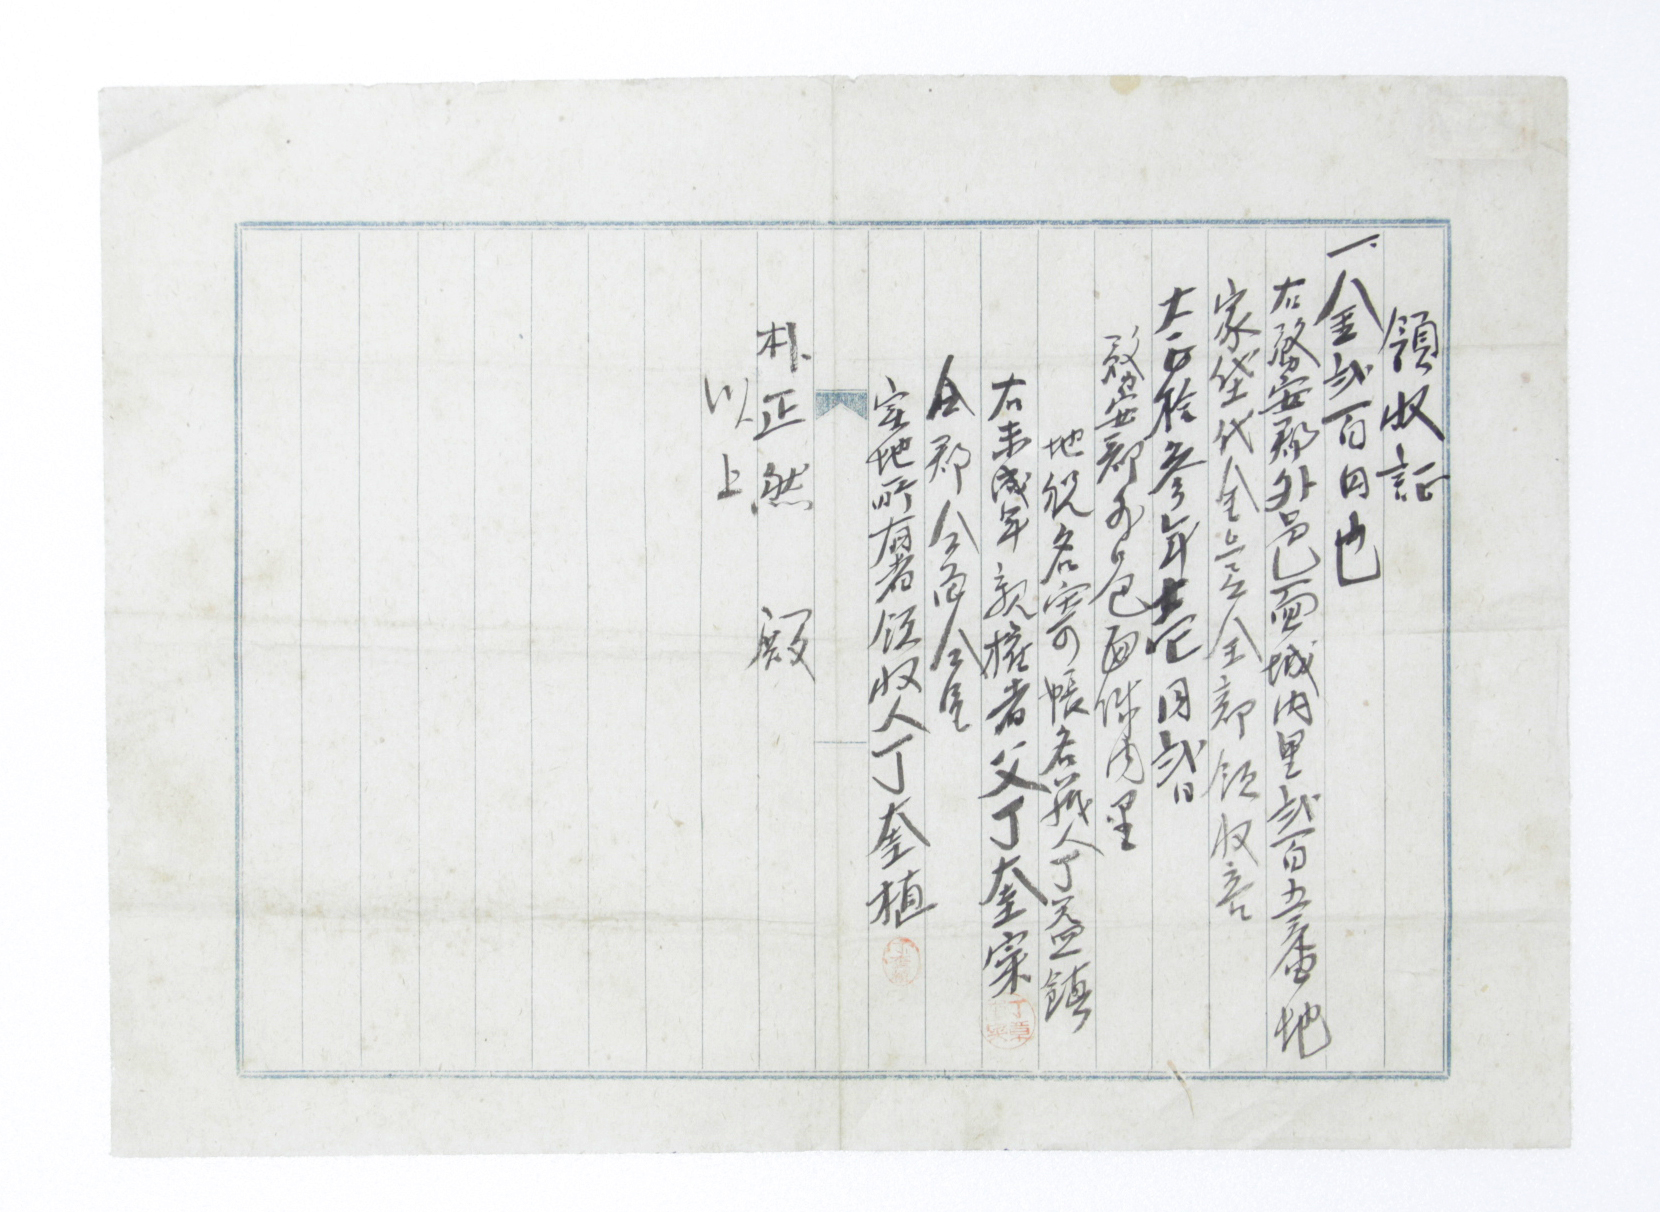 領収証
一、金貳百円也
右務安郡外邑面城内里貳百五番地
家垈代金 全部領収
大正拾參年 月貳日
務安郡外邑面城内里
地稅名寄帳名義人丁益鎮
右未成年親権者父丁奎寀
仝郡仝面仝里
定地所有者領収人丁奎植
朴正然 殿
以上